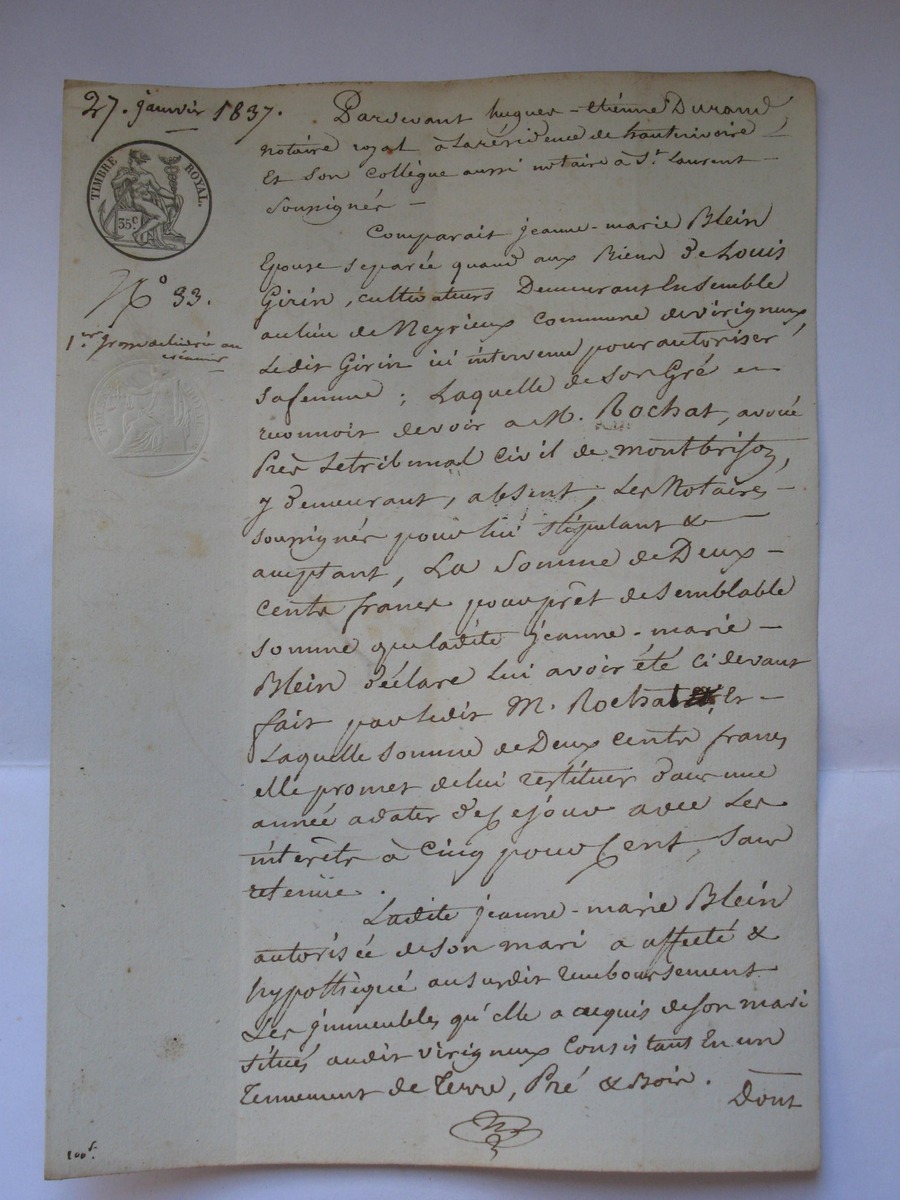 27. janvier 1837.
TIMBRE ROYAL.
35c.
N° 33.
1ere grosse délivrée au
créancier
Pardevant hugues-etiénne Durand,
notaire royal à la résidence de hauterivoire
Et son collègue aussi notaire à St. Laurent
soussignés
Comparait jeanne-marie Blein
Epouse separée quand aux Biens de Louis
Girin, cultivateurs Demeurant Ensemble
au lieu de Neyrieux commune de virigneux,
Ledit Girin ici intervenu pour autoriser
sa femme ; Laquelle de son Gré a
reconnoit devoir a M. Rochat, avoué
Près Le tribunal civil de montbrison,
y demeurant, absent, Les Notaires
soussignés pour lui stipulant &
acceptant, La somme de Deux-
cents francs pour prêt de semblable
somme que ladite jeanne-marie
Blein déclare lui avoir été ci devant
fait par ledit M. Rochat, Et
Laquelle somme de Deux cents francs
elle promet de lui restituer dans une
année a dater de ce jour avec Les
interêts à cinq pour Cent, sans
retenüe.
Ladite jeanne-marie Blein
autorisée de son mari a affecté &
hypothèqué au susdit remboursement
Les jmmeubles qu'elle a acquis de son mari
situés audit virigneux Consistant En un
Tennement de Terre, Pré & Bois. Dont
200f.